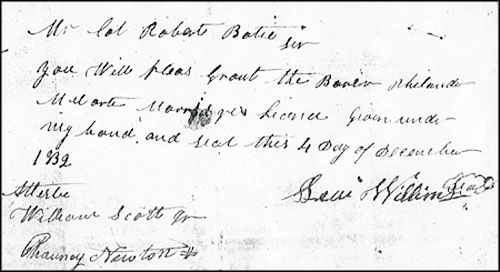 Mr Col Robert Batie
Sir
you Will pleas Grant the Barer Philander
Marridges Licence Given under
my hand and seal this 4 Day of December
1832
Levi Willim Seal
Atteste
William Scott Jr
Chauncy Newton